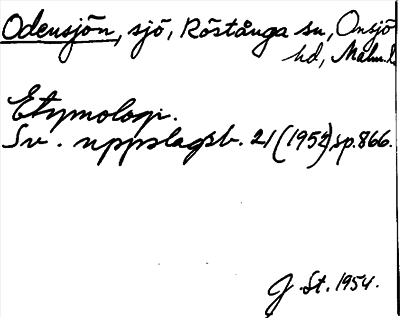 Odensjön, sjö, Röstånga sn, Onsjö
hd, Malm.l.
Etymologi.
Sv. uppslagsb. 21 (1952) sp. 866.
J St. 1954.